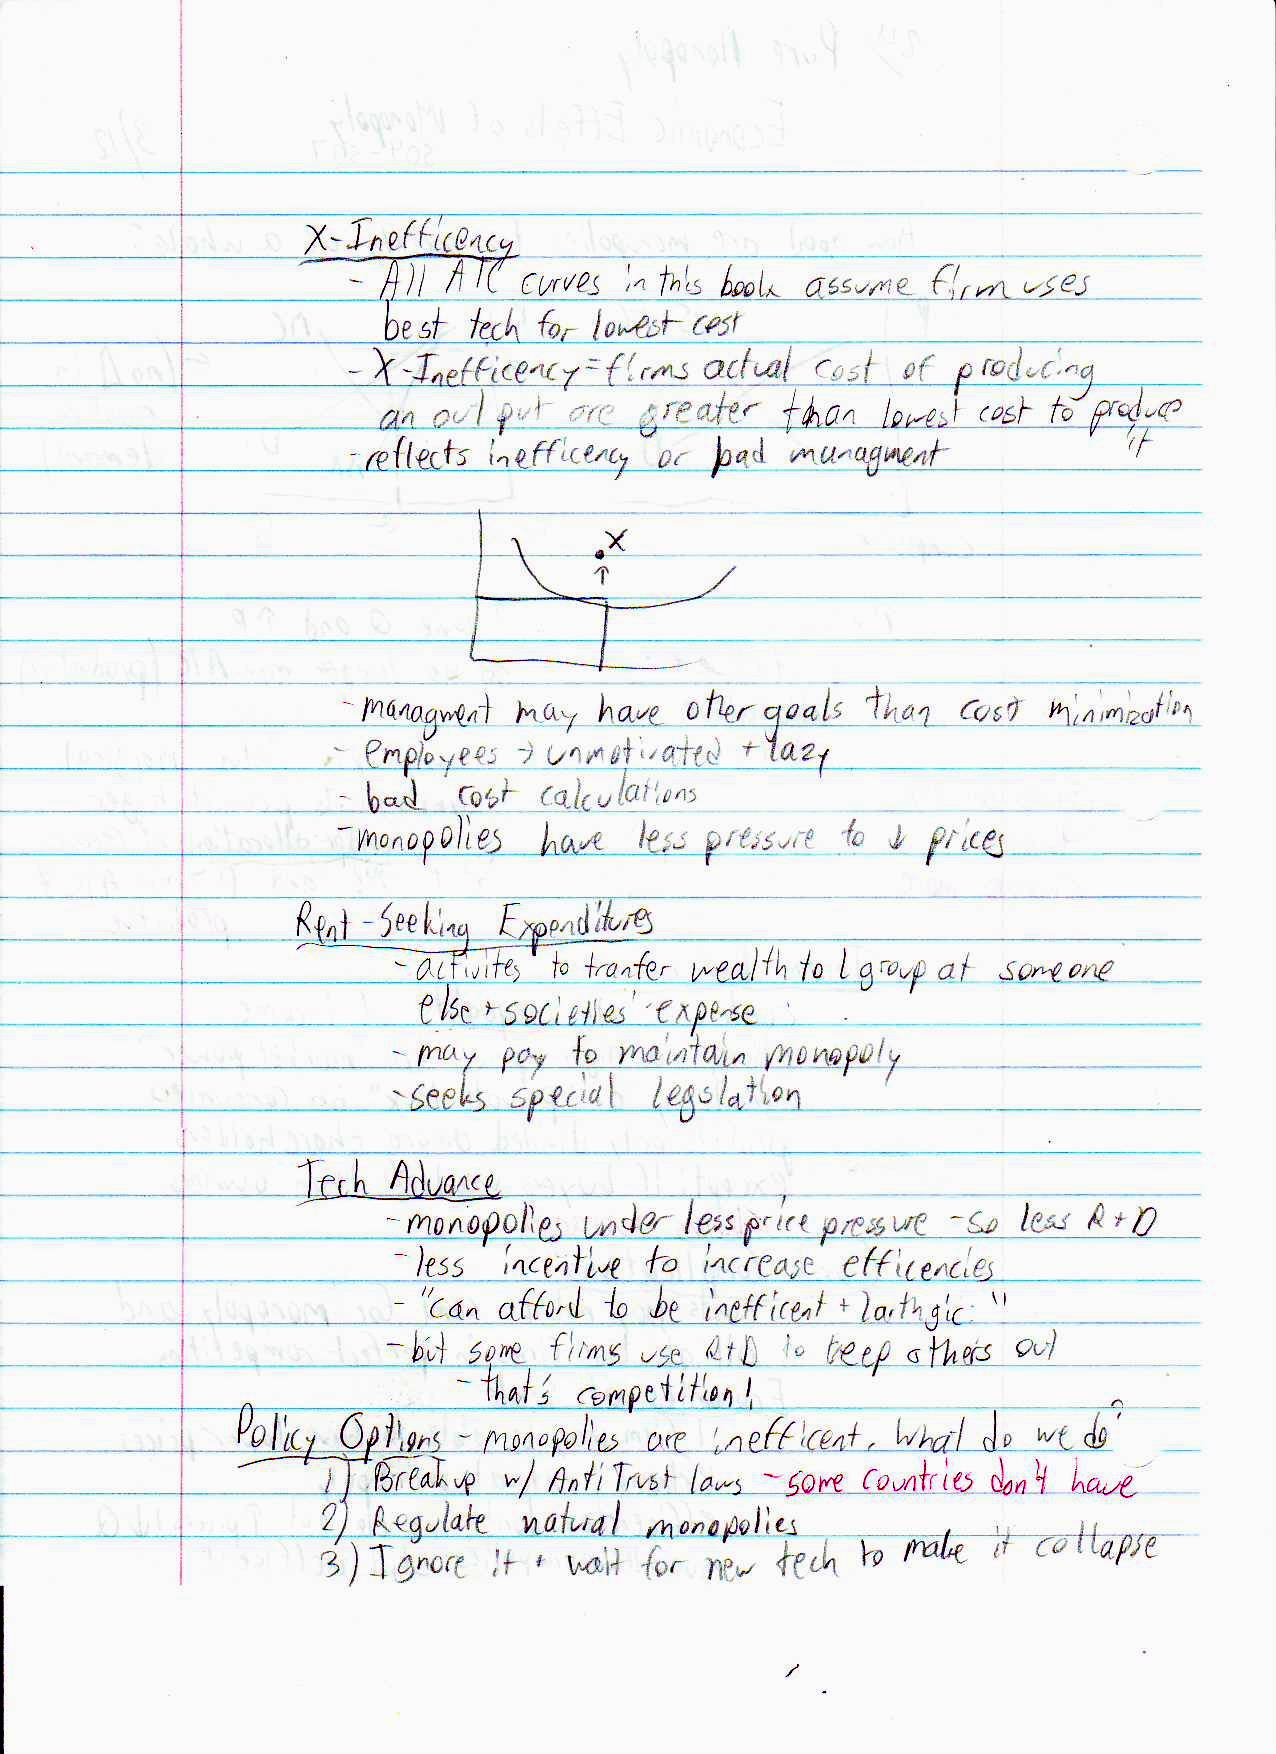 X-Inefficency
- All ATC curves in this book assume firm uses
best tech for lowest cost
- X-Inefficency = firms actual cost of producing
an output are greater than lowest cost to produce
it
- reflects inefficency or bad managment
X
- managment may have other goals than cost minimization
- employees → unmotivated + lazy
- bad cost calculations
- monopolies have less pressure to ↓ prices
Rent-Seeking Expenditures
- activites to tranfer wealth to 1 group at someone
else + societies' expense
- may pay to maintain monopoly
- seeks special legslation
Tech Advance
- monopolies under less price pressure - so less R+D
- less incentive to increase efficencies
- "can afford to be inefficent + larthgic"
- but some firms use R+D to keep others out
- that's competition!
Policy Options - monopolies are inefficent, what do we do?
1) Breakup w/ AntiTrust laws - some countries don't have
2) Regulate natural monopolies
3) Ignore it + wait for new tech to make it collapse